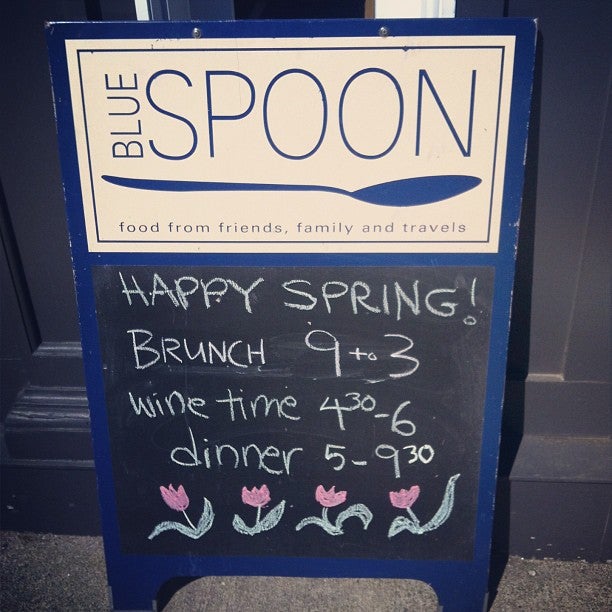 BLUE SPOON
food from friends, family and travels
HAPPY SPRING!
BRUNCH 9 to 3
wine time 4³⁰-6
dinner 5-9³⁰